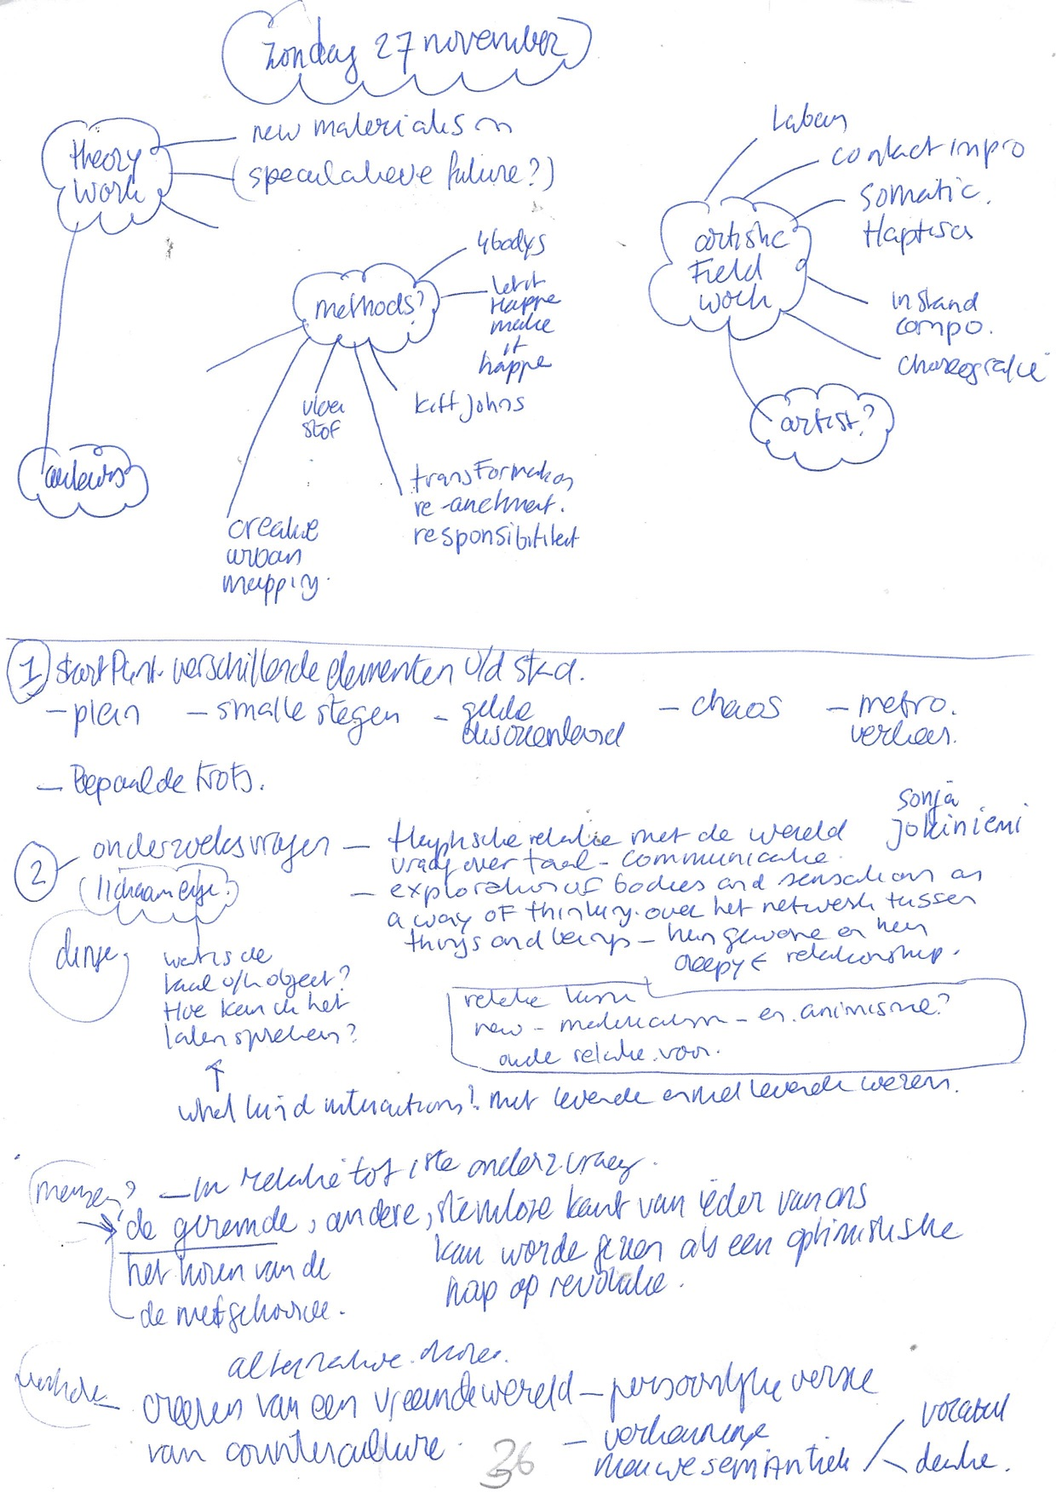 zondag 27 november
theory
work
new materialism
(speculatieve future?)
auteurs
methods?
4bodys
let it
Happe
make
it
happe
keith johns
vloei
stof
transformation
re-anchment.
responsibiliteit
creative
urban
mapping.
artistic
Field
work
Laban
contact impro
somatic.
Haptisch
instand
compo.
choreografie
artist?
1 startPunt. verschillende elementen v/d stad.
- plein
- smalle stegen
- gelde
desorienteerd
- chaos
- metro.
verkeer.
- Bepaalde trots.
2 onderzoeksvragen
lichaamelijk?
- Haptische relatie met de wereld
vraag over taal - communicatie.
- exploration of bodies and sensations as
a way of thinking. over het netwerk tussen
things and beings - hun gewone en hun
creepy relationship.
sonja
jokiniemi
dingen
wat is de
taal v/h object?
Hoe kan ik het
laten spreken?
relatie
new - materialism - en animisme?
oude relatie voor.
what kind interactions? met levende en niet levende wezens.
mensen? - in relatie tot 1ste onderz vraag.
de geremde, andere, stemloze kant van ieder van ons
kan worde gezien als een optimistische
hap op revolutie.
het horen van de
de niet gehoorde.
alternatieve
creeren van een vreemde wereld - persoonlijke versie
van counterculture.
- verkenning
nieuwe semantiek
vocabul
denke.
36